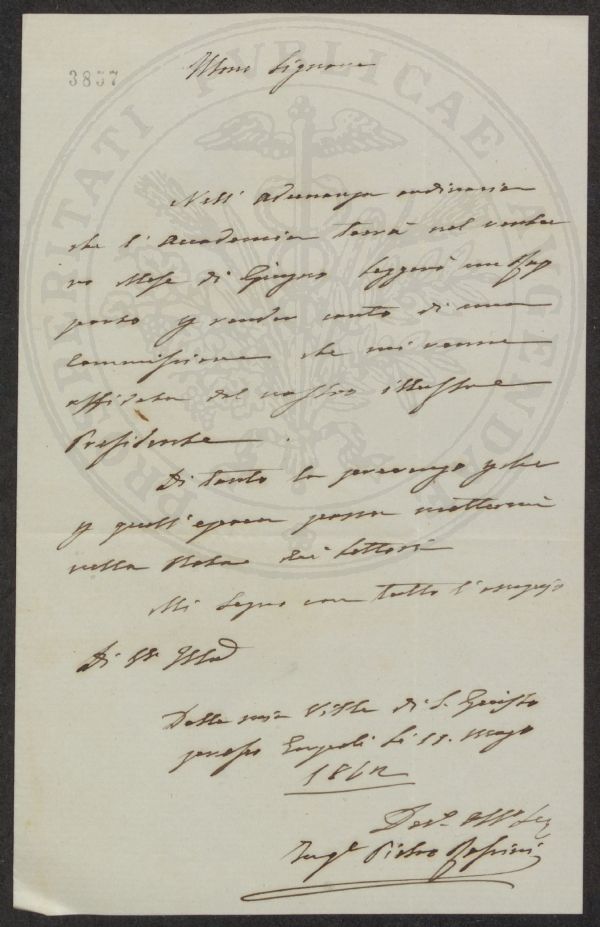 3857
Illmo Signore
Nell' Adunanza ordinaria
che l' Accademia terrà nel ventu
ro Mese di Giugno leggerò un Rap
porto p render conto di una
Commissione che mi venne
affidata dal nostro illustre
Presidente.
Di tanto la prevengo pche
p quell' epoca possa mettermi
nella Nota dei Lettori
Mi segno con tutto l' ossequio
Di VS. Illma
Dalla mia Villa di S. Giusto
presso Empoli li 11. Maggio
Devo
Ingre Pietro
PROSPERITATI PUBLICAE AUGENDAE